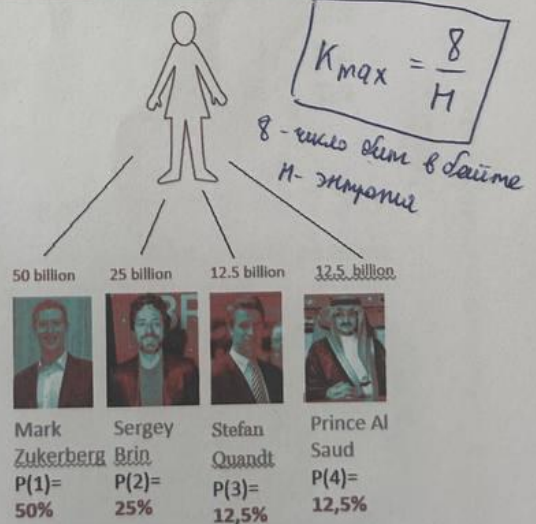 Kmax = 8/H
8 - число бит в байте
H - энтропия
50 billion 25 billion 12.5 billion 12.5 billion
Mark Zukerberg
P(1)=
50%
Sergey Brin
P(2)=
25%
Stefan Quandt
P(3)=
12,5%
Prince Al Saud
P(4)=
12,5%